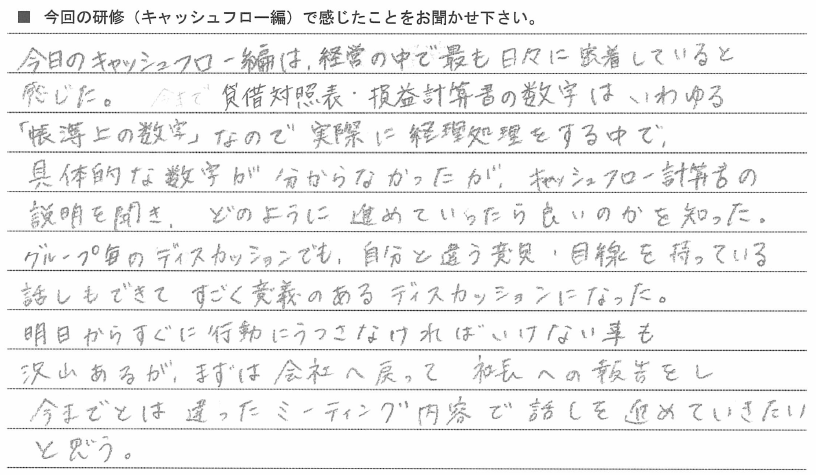 ■ 今回の研修（キャッシュフロー編）で感じたことをお聞かせ下さい。
今日のキャッシュフロー編は、経営の中で最も日々に密着していると
感じた。 貸借対照表・損益計算書の数字はいわゆる
「帳簿上の数字」なので実際に経理処理をする中で、
具体的な数字が分からなかったが、キャッシュフロー計算書の
説明を聞き、どのように進めていったら良いのかを知った。
グループ毎のディスカッションでも、自分と違う意見・目線を持っている
話しもできてすごく意義のあるディスカッションになった。
明日からすぐに行動にうつさなければいけない事も
沢山あるが、まずは会社へ戻って社長への報告をし
今までとは違ったミーティング内容で話しを進めていきたい
と思う。